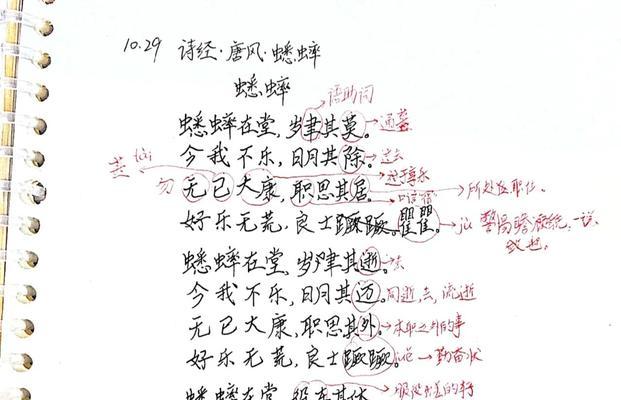 10.29 诗经·唐风·蟋蟀
蟋蟀
语助词
蟋蟀在堂,岁聿其莫。通暮
今我不乐,日月其除。过去
无已大康,职思其居。
勿
过于享乐
所处在职位。
好乐无荒,良士蹶蹶。瞿瞿。
蟋蟀在堂,岁聿其逝。去
今我不乐,日月其迈。同逝,去,流逝
无已大康,职思其外。本职之外的事
好乐无荒,良士蹶蹶。勤奋状
蟋蟀在堂,役车其休。